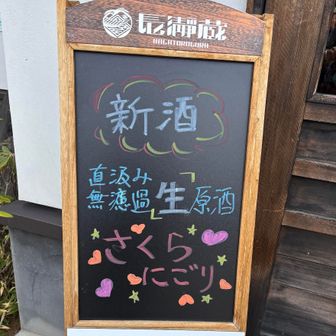 長瀞蔵
NAGATOROGURA
新酒
直汲み
無濾過「生」原酒
さくら
にごり